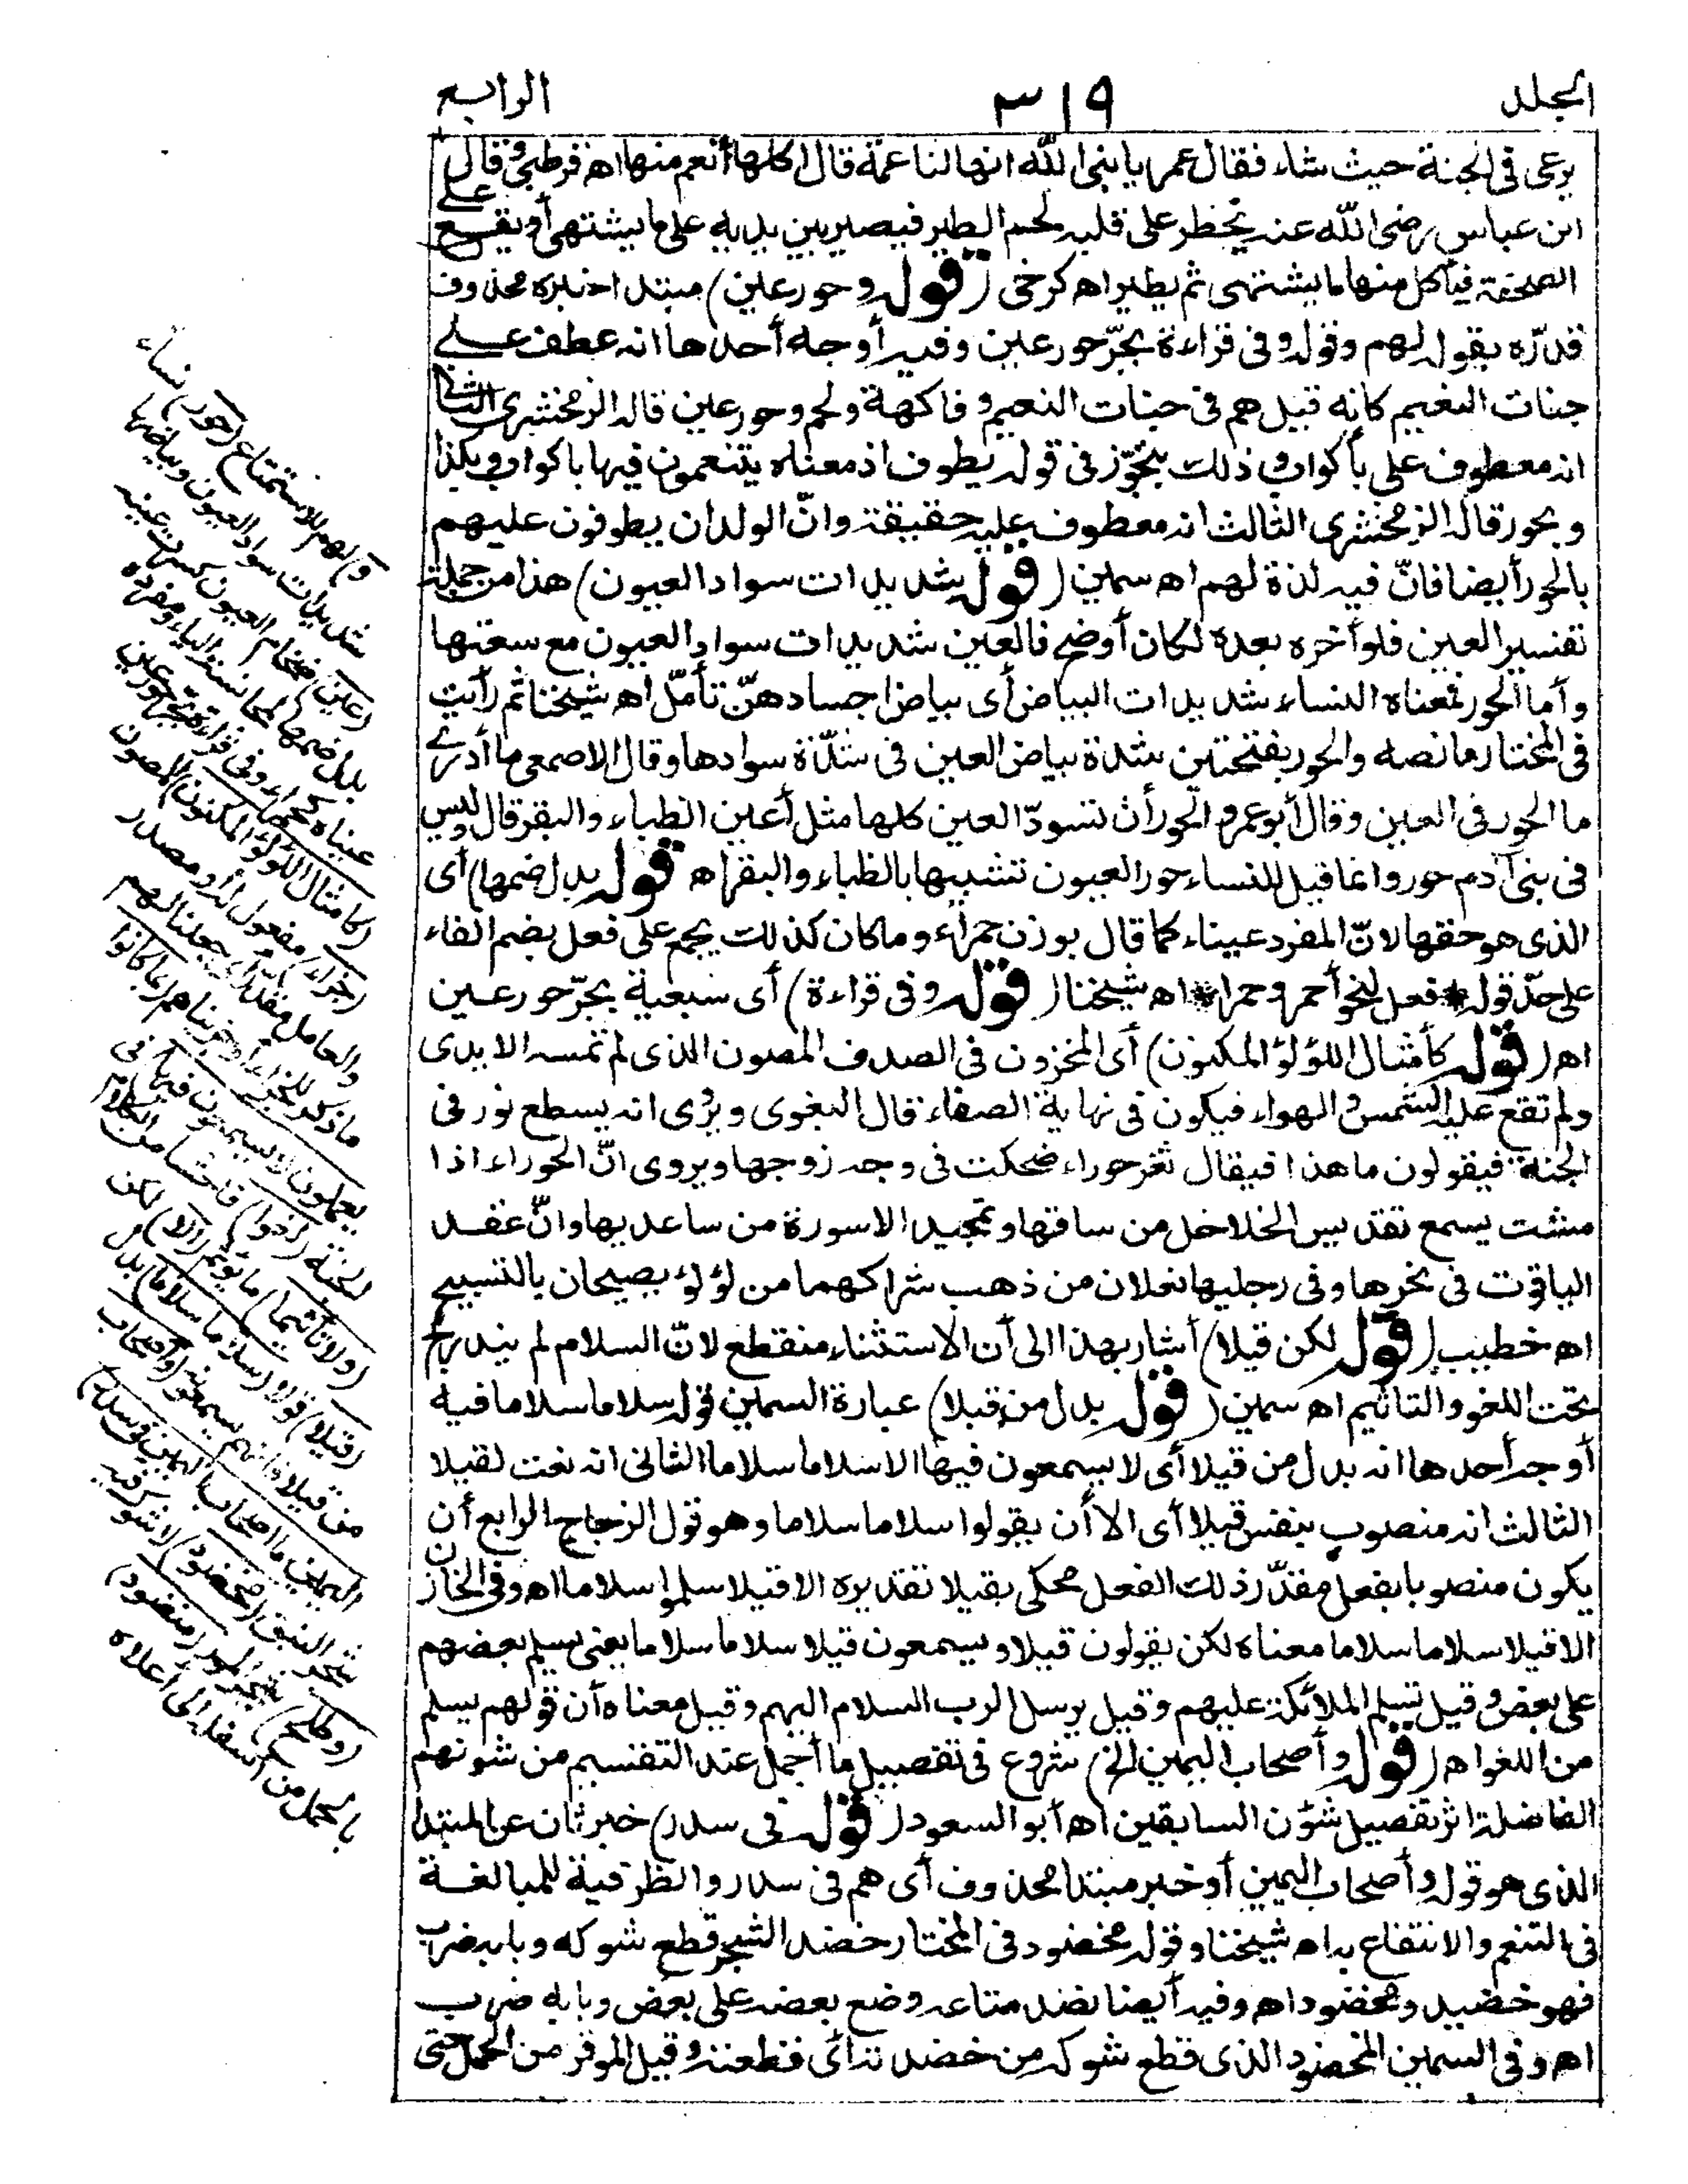 المجلد ٣١٩ الرابع
يرعى فى الجنة حيث شاء فقال عمر يا نبى الله انها لناعمة قال اكلها أنعم منها اه قرطبى وقال
ابن عباس رضى الله عنه يخطر على قلبه لحم الطير فيصير بين يديه على ما يشتهى أو يقع على
الصحفة فيأكل منها ما يشتهى ثم يطير اه كرخى (قوله وحور عين) مبتدا خبره محذوف
قدّره بقوله لهم وقوله وفى قراءة بجرّ حور عين وفيه أوجه أحدها انه عطف على
جنات النعيم كانه قيل هم فى جنات النعيم وفاكهة ولحم وحور عين قاله الزمخشرى الثانى
انه معطوف على بأكواب وذلك بتجوّز فى قوله يطوف اذ معناه يتنعمون فيها باكواب وبكذا
وبحور قاله الزمخشرى الثالث انه معطوف عليه حقيقة وانّ الولدان يطوفون عليهم
بالحور أيضا فانّ فيه لذة لهم اه سمين (قوله شديدات سواد العيون) هذا من جملة
تفسير العين فلو أخره بعده لكان أوضح فالعين شديدات سواد العيون مع سعتها
وأما الحور فمعناه النساء شديدات البياض أى بياض اجسادهنّ تأمّل اه شيخنا ثم رأيت
فى المختار ما نصه والحور بفتحتين شدة بياض العين فى شدّة سوادها وقال الاصمعى ما أدرى
ما الحور فى العين وقال أبو عمرو الحور أن تسودّ العين كلها مثل أعين الظباء والبقر قال وليس
فى بنى آدم حور وانما قيل للنساء حور العيون تشبيها بالظباء والبقر اه (قوله بدل ضمها) أى
الذى هو حقها لانّ المفرد عيناء كما قال بوزن حمراء وما كان كذلك يجمع على فعل بضم الفاء
على حدّ قوله * فعل لنحو أحمر وحمرا * اه شيخنا (قوله وفى قراءة) أى سبعية بجرّ حور عين
اه (قوله كأمثال اللؤلؤ المكنون) أى المخزون فى الصدف المصون الذى لم تمسه الايدى
ولم تقع عليه الشمس والهواء فيكون فى نهاية الصفاء قال البغوى ويروى انه يسطع نور فى
الجنة فيقولون ما هذا فيقال ثغر حوراء ضحكت فى وجه زوجها ويروى انّ الحوراء اذا
مشت يسمع تقديس الخلاخل من ساقها وتمجيد الاسورة من ساعديها وانّ عقد
الياقوت فى نحرها وفى رجليها نعلان من ذهب شراكهما من لؤلؤ يصيحان بالتسبيح
اه خطيب (قوله لكن قيلا) أشار بهذا الى أن الاستثناء منقطع لانّ السلام لم يندرج
تحت اللغو والتاثيم اه سمين (قوله بدل من قيلا) عبارة السمين قوله سلاما سلاما فيه
أوجه أحدها انه بدل من قيلا أى لا يسمعون فيها الا سلاما سلاما الثانى انه نعت لقيلا
الثالث انه منصوب بنفس قيلا أى الا أن يقولوا سلاما سلاما وهو قول الزجاج الرابع أن
يكون منصوبا بفعل مقدّر ذلك الفعل محكى بقيلا تقديره الا قيلا سلموا سلاما اه وفى الخازن
الا قيلا سلاما سلاما معناه لكن يقولون قيلا ويسمعون قيلا سلاما سلاما يعنى يسلم بعضهم
على بعض وقيل تسلم الملائكة عليهم وقيل يرسل الرب السلام اليهم وقيل معناه أن قولهم يسلم
من اللغو اه (قوله وأصحاب اليمين الخ) شروع فى تفصيل ما أجمل عند التقسيم من شونهم
الفاضلة اثر تفصيل شؤن السابقين اه أبو السعود (قوله فى سدر) خبر ثان عن المبتدا
الذى هو قوله وأصحاب اليمين أو خبر مبتدا محذوف أى هم فى سدر والظرفية للمبالغة
فى التنعم والانتفاع به اه شيخنا وقوله مخضود فى المختار خضد الشجر قطع شوكه وبابه ضرب
فهو خضيد ومخضود اه وفيه أيضا نضد متاعه وضع بعضه على بعض وبابه ضرب
اه وفى السمين المخضود الذى قطع شوكه من خضدته أى قطعته وقيل الموقر من الحمل حتى
و لهم للاستمتاع (حور) نساء
شديدات سواد العيون وبياضها
(عين) ضخام العيون كسرت عينه
بدل ضمها لمجانسة الياء ومفرده
عيناء كحمراء وفى قراءة بجر حور عين
(كامثال اللؤلؤ المكنون) المصون
(جزاء) مفعول له أو مصدر
والعامل مقدر أى جعلنا لهم
ما ذكر للجزاء أو جزيناهم (بما كانوا
يعملون لا يسمعون فيها) فى
الجنة (لغوا) فاحشا من الكلام
(ولا تأثيما) ما يؤثم (الا) لكن
(قيلا) قولا (سلاما سلاما) بدل
من قيلا فانهم يسمعونه (وأصحاب
اليمين ما اصحاب اليمين فى سدر)
شجر النبق (مخضود) لا شوك فيه
(وطلح) شجر الموز (منضود)
بالحمل من أسفله الى أعلاه